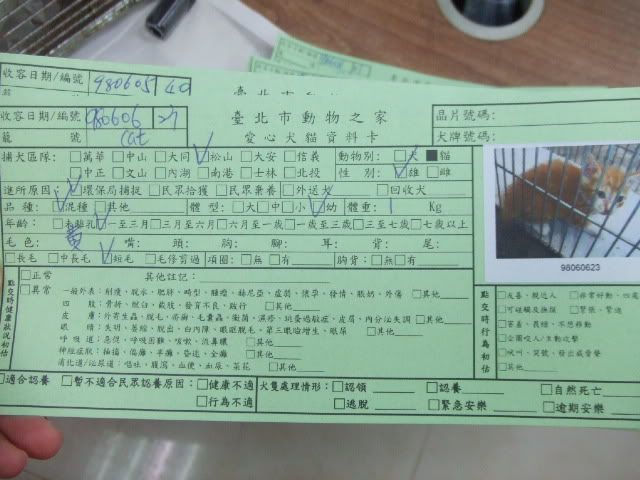 收容日期/編號 980605 40
收容日期/編號 980606 27 臺北市動物之家 晶片號碼:
籠 號 cat 愛心犬貓資料卡 犬牌號碼:
捕犬區隊: □萬華 □中山 □大同 □松山 □大安 □信義 動物別: □犬 ■貓
□中正 □文山 □內湖 □南港 □士林 □北投 性 別: □雄 □雌
進所原因: □環保局捕捉 □民眾拾獲 □民眾棄養 □外送犬 □回收犬
品 種: □混種 □其他 體 型: □大 □中 □小 □幼 體重: 1 Kg
年齡: □未離乳 □一至三月 □三月至六月 □六月至一歲 □一歲至三歲 □三至七歲 □七歲以上
毛色: 黃 嘴: 頭: 胸: 腳: 耳: 背: 尾:
□長毛 □中長毛 □短毛 □毛修剪過 項圈: □無 □有 胸背: □無 □有
98060623
點交時健康狀況初估
□正常 其他註記:
□異常 一般外表: 削瘦、脫水、肥胖、畸型、腫瘤、赫尼亞、虛弱、懷孕、發情、眼奶、外傷 □其他
四 肢: 骨折、脫臼、截肢、發育不良、跛行 □其他
皮 膚: 外寄生蟲、脫毛、疥癬、毛囊蟲、黴菌、濕疹、跳蚤過敏症、皮屑、內分泌失調 □其他
眼 睛: 失明、萎縮、脫出、白內障、眼瞼脫毛、第三眼瞼增生、眼屎 □其他
呼 吸 道: 急促、呼吸困難、咳嗽、流鼻膿 □其他
神經症狀: 抽搐、偏癱、半癱、昏迷、全癱 □其他
消化道/泌尿道: 嘔吐、腹瀉、血便、血尿、菜花 □其他
點交時行為初估
□友善、親近人 □非常好動、四處
□可碰觸及撫摸 □緊張、緊迫
□害羞、畏縮、不想移動
□企圖咬人/主動攻擊
□吠叫、哭號、發出威脅聲
□其他
□適合認養 □暫不適合民眾認養原因: □健康不適 犬隻處理情形: □認領 □認養 □自然死亡
□行為不適 □逃脫 □緊急安樂 □逾期安樂